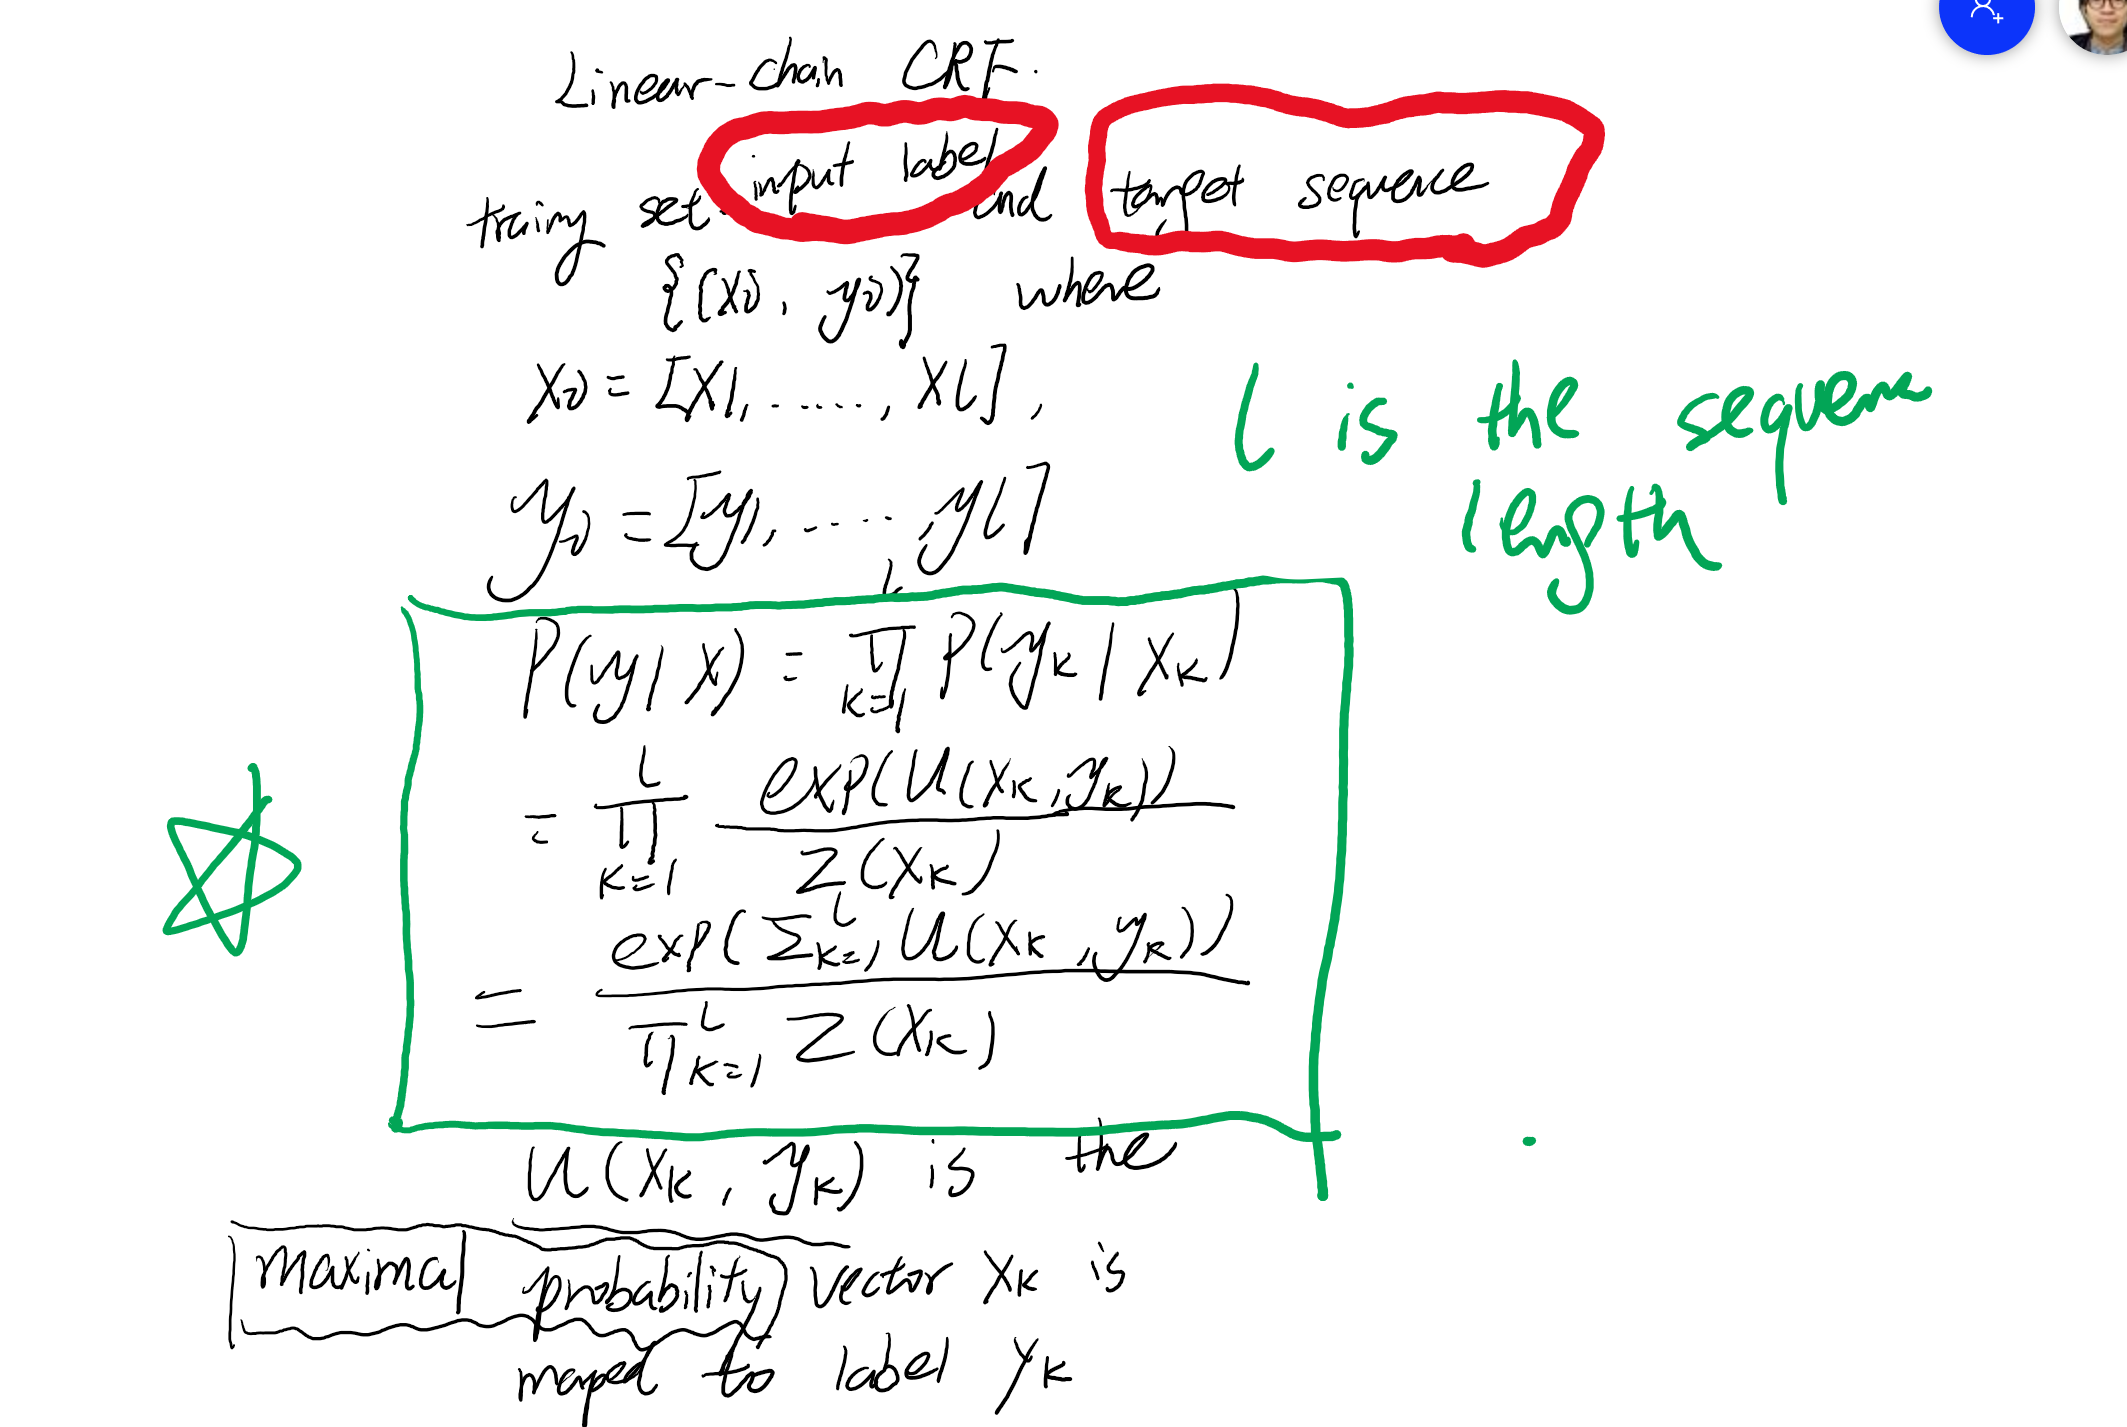 Linear-chain CRF.
trainy set input label and target sequence
{(x0, y0)} where
x0 = [x1, ....., xl],
y0 = [y1, ....., yl]
l is the sequence
length
P(y | x) = ∏_{k=1}^{L} P(y_k | x_k)
= ∏_{k=1}^{L} exp(U(x_k, y_k)) / Z(x_k)
= exp(Σ_{k=1}^{L} U(x_k, y_k)) / ∏_{k=1}^{L} Z(x_k)
U(x_k, y_k) is the
maximal probability vector x_k is
maped to label y_k